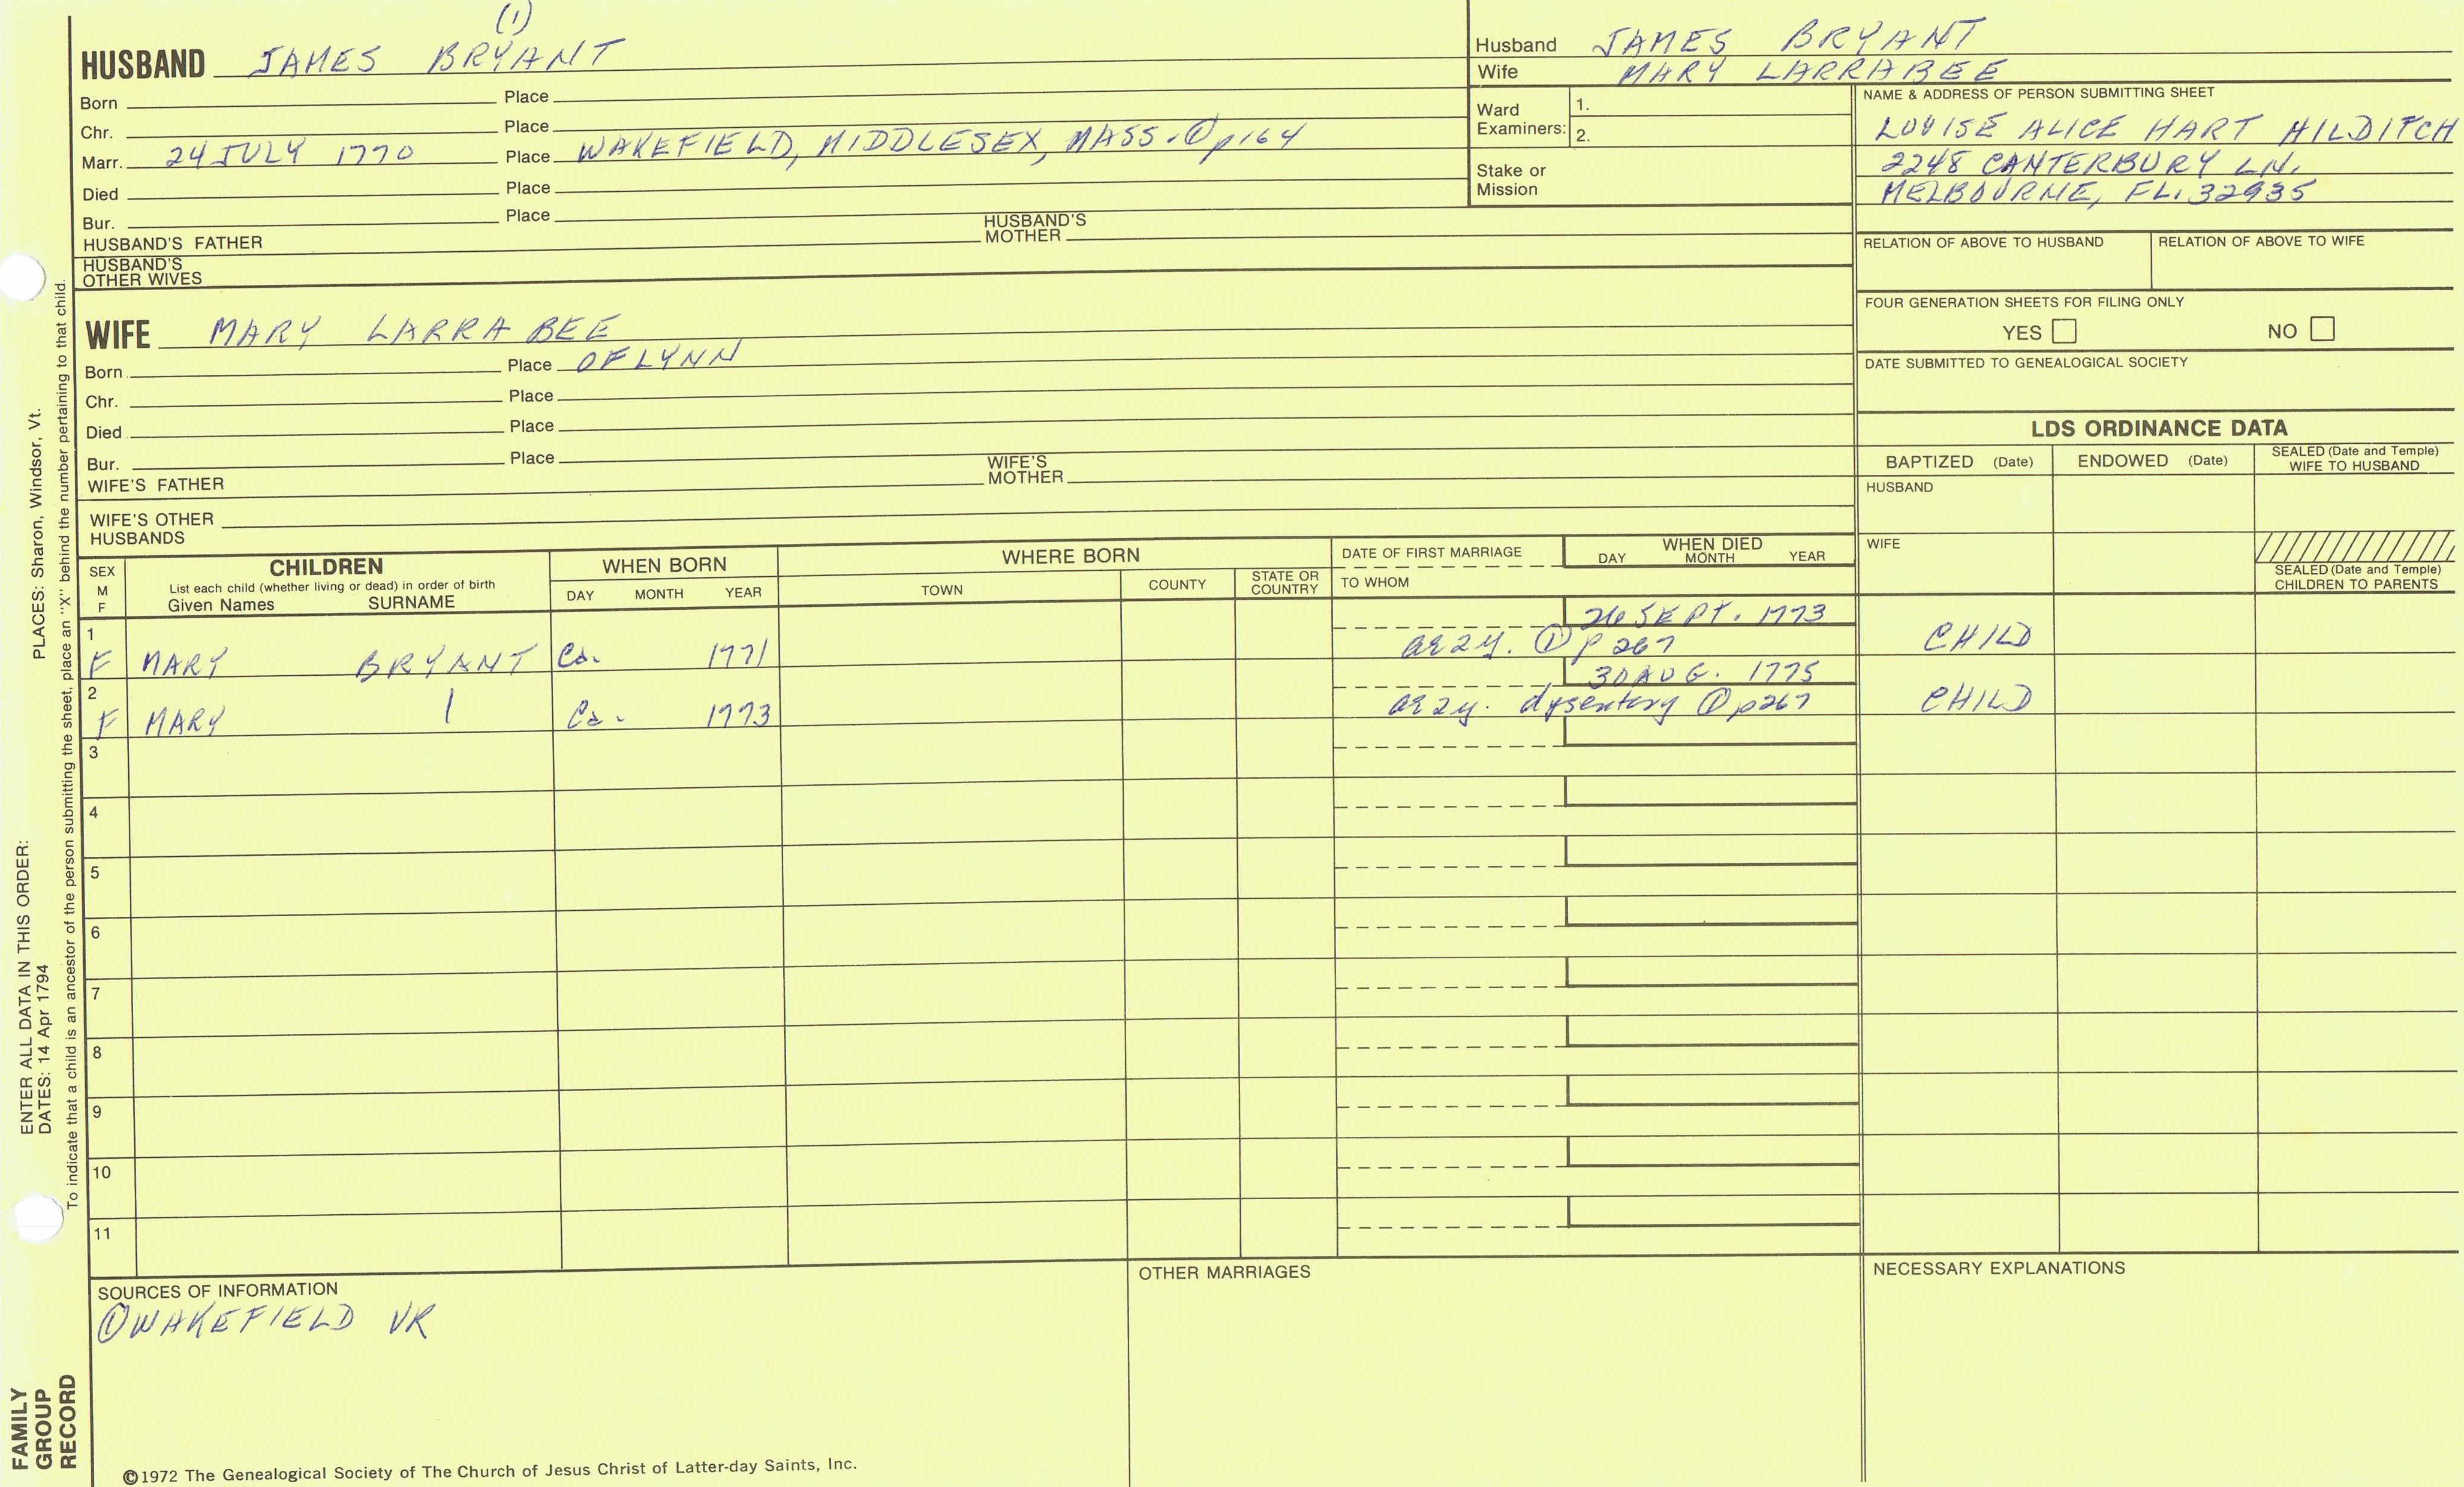 (1)
HUSBAND JAMES BRYANT
Born Place
Chr. Place
Marr. 24 JULY 1770 Place WAKEFIELD, MIDDLESEX, MASS. ① p164
Died Place
Bur. Place
HUSBAND'S FATHER HUSBAND'S MOTHER
HUSBAND'S OTHER WIVES
Husband JAMES BRYANT
Wife MARY LARRABEE
Ward Examiners: 1.
2.
Stake or Mission
NAME & ADDRESS OF PERSON SUBMITTING SHEET
LOUISE ALICE HART HILDITCH
2248 CANTERBURY LN.
MELBOURNE, FL. 32935
RELATION OF ABOVE TO HUSBAND RELATION OF ABOVE TO WIFE
FOUR GENERATION SHEETS FOR FILING ONLY
YES NO
DATE SUBMITTED TO GENEALOGICAL SOCIETY
WIFE MARY LARRABEE
Born Place OF LYNN
Chr. Place
Died Place
Bur. Place
WIFE'S FATHER WIFE'S MOTHER
WIFE'S OTHER HUSBANDS
LDS ORDINANCE DATA
BAPTIZED (Date) ENDOWED (Date) SEALED (Date and Temple) WIFE TO HUSBAND
HUSBAND
WIFE
SEALED (Date and Temple) CHILDREN TO PARENTS
SEX M F
CHILDREN
List each child (whether living or dead) in order of birth
Given Names SURNAME
WHEN BORN
DAY MONTH YEAR
WHERE BORN
TOWN COUNTY STATE OR COUNTRY
DATE OF FIRST MARRIAGE
TO WHOM
WHEN DIED
DAY MONTH YEAR
1 26 SEPT. 1773
F MARY BRYANT Ca. 1771 ae 2y. ① p267 CHILD
2 30 AUG. 1775
F MARY | Ca. 1773 ae 2y. dysentery ① p267 CHILD
3
4
5
6
7
8
9
10
11
SOURCES OF INFORMATION
① WAKEFIELD VR
OTHER MARRIAGES
NECESSARY EXPLANATIONS
©1972 The Genealogical Society of The Church of Jesus Christ of Latter-day Saints, Inc.
FAMILY GROUP RECORD
ENTER ALL DATA IN THIS ORDER:
DATES: 14 Apr 1794 PLACES: Sharon, Windsor, Vt.
To indicate that a child is an ancestor of the person submitting the sheet, place an "X" behind the number pertaining to that child.